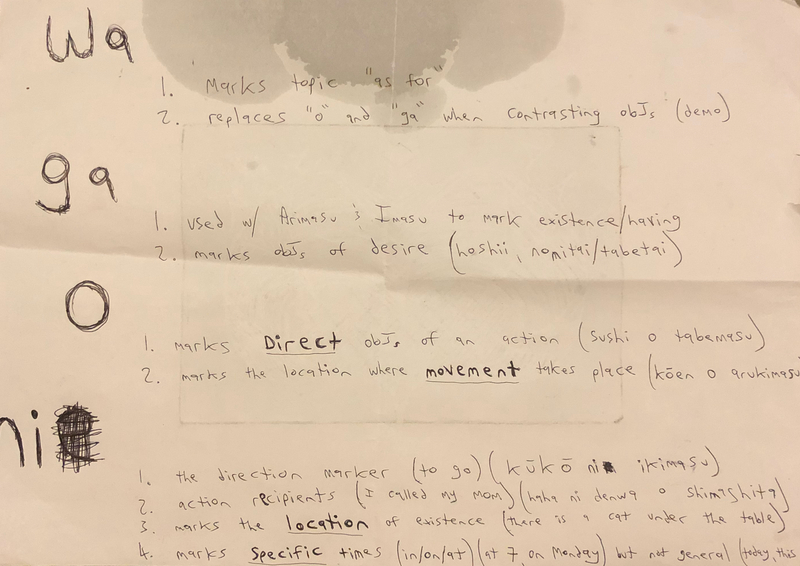 Wa
1. Marks topic "as for"
2. replaces "o" and "ga" when contrasting objs (demo)
ga
1. used w/ Arimasu & Imasu to mark existence/having
2. marks objs of desire (hoshii, nomitai/tabetai)
O
1. marks Direct objs of an action (sushi o tabemasu)
2. marks the location where movement takes place (kōen o arukimasu
ni
1. the direction marker (to go) (kūkō ni ikimasu)
2. action recipients (I called my mom) (haha ni denwa o shimashita)
3. marks the location of existence (there is a cat under the table)
4. marks specific times (in/on/at) (at 7, on Monday) but not general (today, this